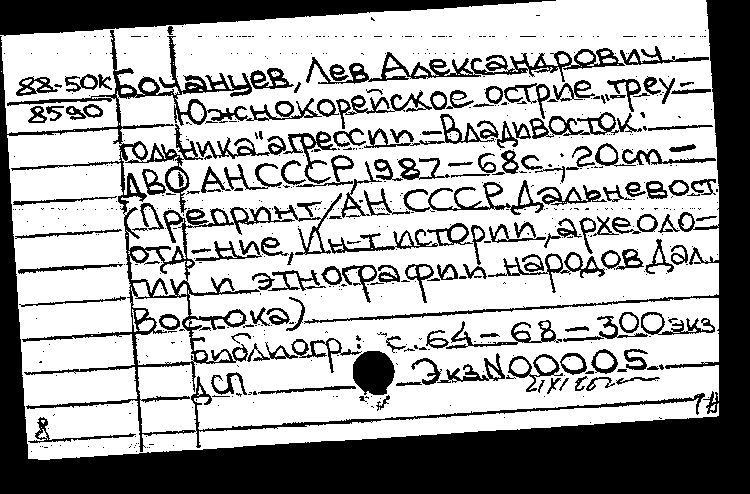 88-50к Бочанцев, Лев Александрович.
8590 Южнокорейское острие „треу-
гольника" агрессии. - Владивосток:
ДВО АН СССР, 1987 - 68с.; 20см -
(Препринт / АН СССР, Дальневост.
отд-ние, Ин-т истории, археоло-
гии и этнографии народов Дал.
Востока)
Библиогр.: с. 64-68 - 300экз
ДСП Экз.N00005
8